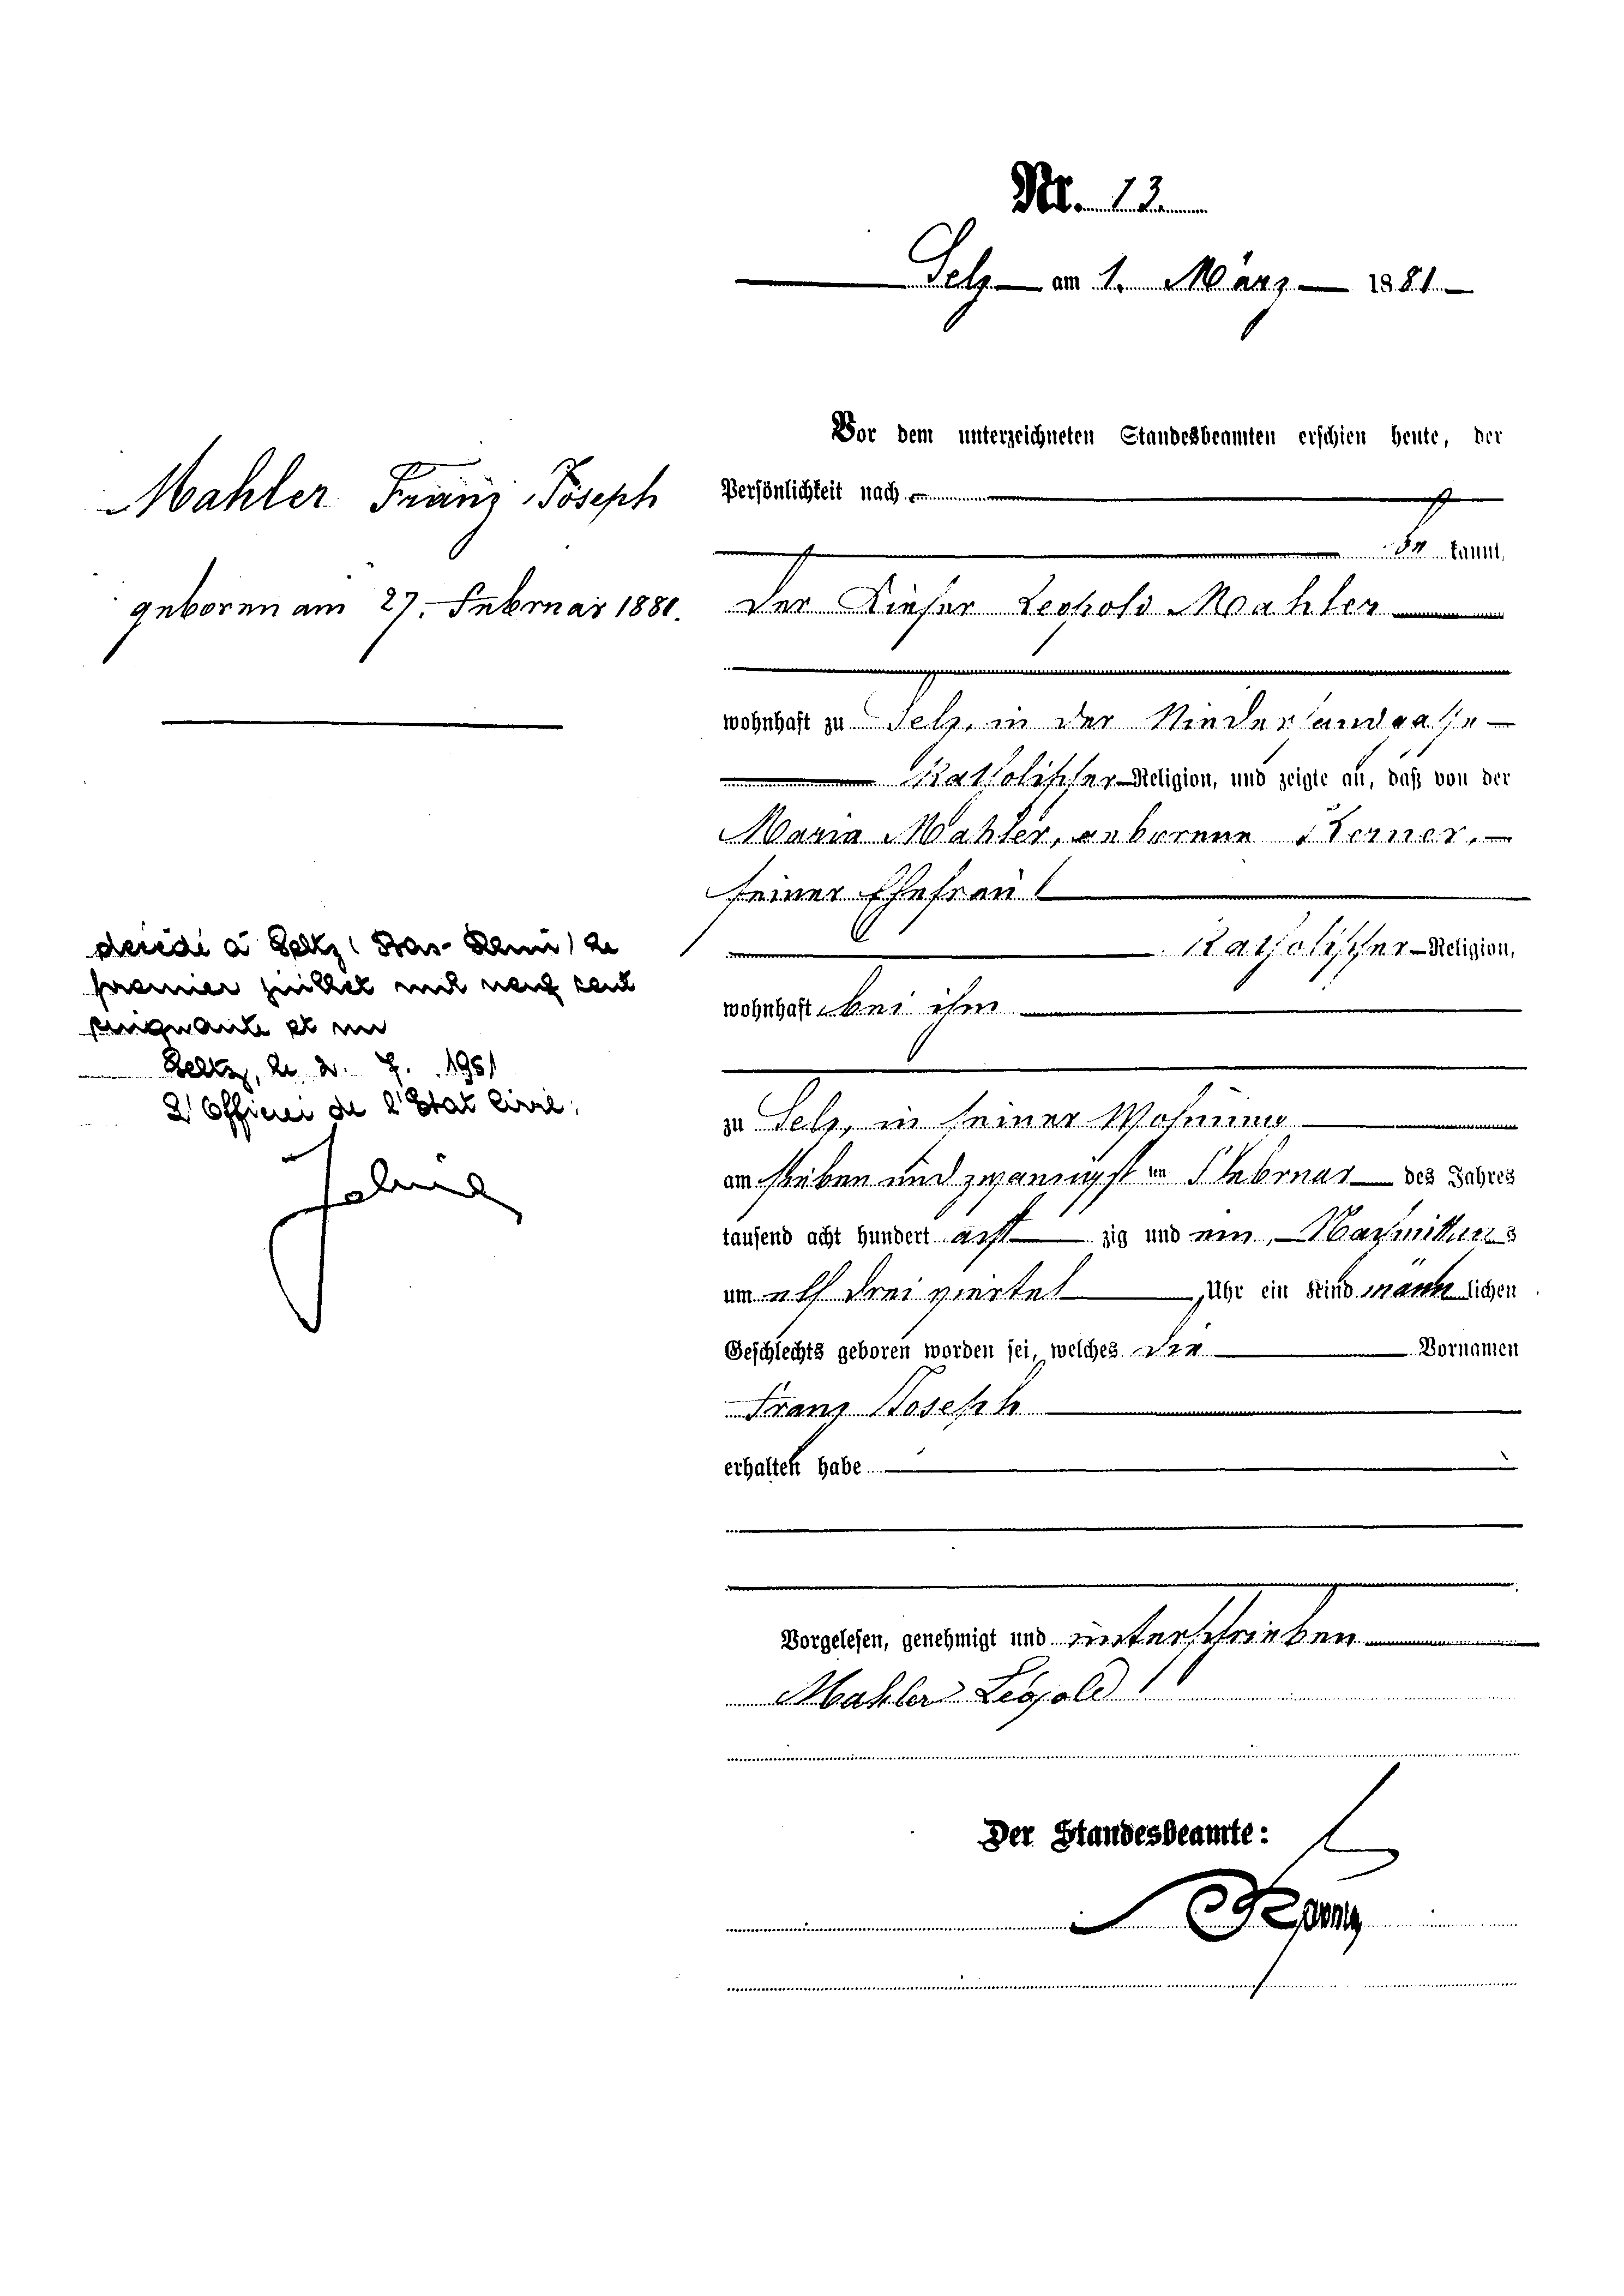 Nr. 13.
Selz am 1. März 1881
Vor dem unterzeichneten Standesbeamten erschien heute, der
Persönlichkeit nach
be kannt,
der Küfer Leopold Mahler
wohnhaft zu Selz, in der Niedersandgasse
Katholischer Religion, und zeigte an, daß von der
Maria Mahler, geborene Kerner,
seiner Ehefrau
Katholischer Religion,
wohnhaft bei ihm
zu Selz, in seiner Wohnung
am sieben und zwanzigst en Februar des Jahres
tausend acht hundert acht zig und ein, Nachmittags
um elf drei viertel Uhr ein Kind männ lichen
Geschlechts geboren worden sei, welches die Vornamen
Franz Joseph
erhalten habe
Vorgelesen, genehmigt und unterschrieben
Mahler Léopold
Der Standesbeamte:
Mahler Franz Joseph
geboren am 27. Februar 1881.
décédé à Seltz (Bas-Rhin) le
premier juillet mil neuf cent
cinquante et un
Seltz, le 2. 7. 1951
L'Officier de l'Etat Civil: